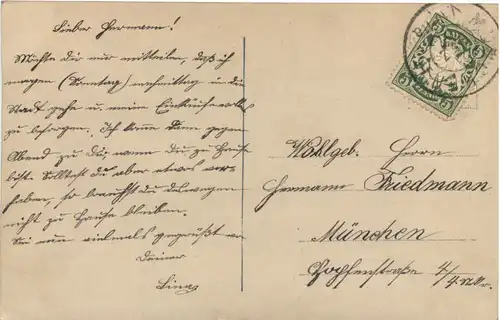 Lieber Hermann!
Möchte dir nur mitteilen, daß ich
morgen (Sonntag) nachmittag in die
Stadt gehe u. meine Einkäufe
zu besorgen. Ich komme dann gegen
Abend zu Dir, wenn Du zu Hause
bist. Solltest Du aber etwas vor-
haben, so brauchst Du deswegen
nicht zu Hause bleiben.
Sei nun vielmals gegrüßt von
Deiner
Lina
Wohlgeb. Herrn
Hermann Friedmann
München
Hopfenstraße